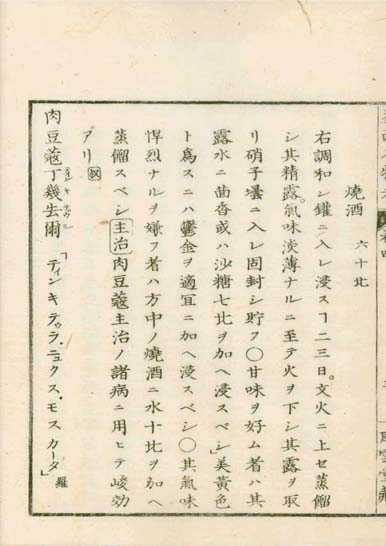 燒酒 六十匕
右調和シ鑵ニ入レ浸スヿ二三日。文火ニ上セ蒸餾
シ其精露。氣味淡薄ナルニ至テ火ヲ下シ其露ヲ取
リ硝子壜ニ入レ固封シ貯フ〇甘味ヲ好ム者ハ其
露水ニ茴香或ハ沙糖七匕ヲ加ヘ浸スベシ」美黃色
ト爲スニハ鬱金ヲ適宜ニ加ヘ浸スベシ〇其氣味
悍烈ナルヲ嫌フ者ハ方中ノ燒酒ニ水十匕ヲ加ヘ
蒸餾スベシ 主治 肉豆蔲主治ノ諸病ニ用ヒテ峻効
アリ 㕛
肉豆蔲丁幾去爾「ティンキテゥラ、ニュクス、モスカータ」羅